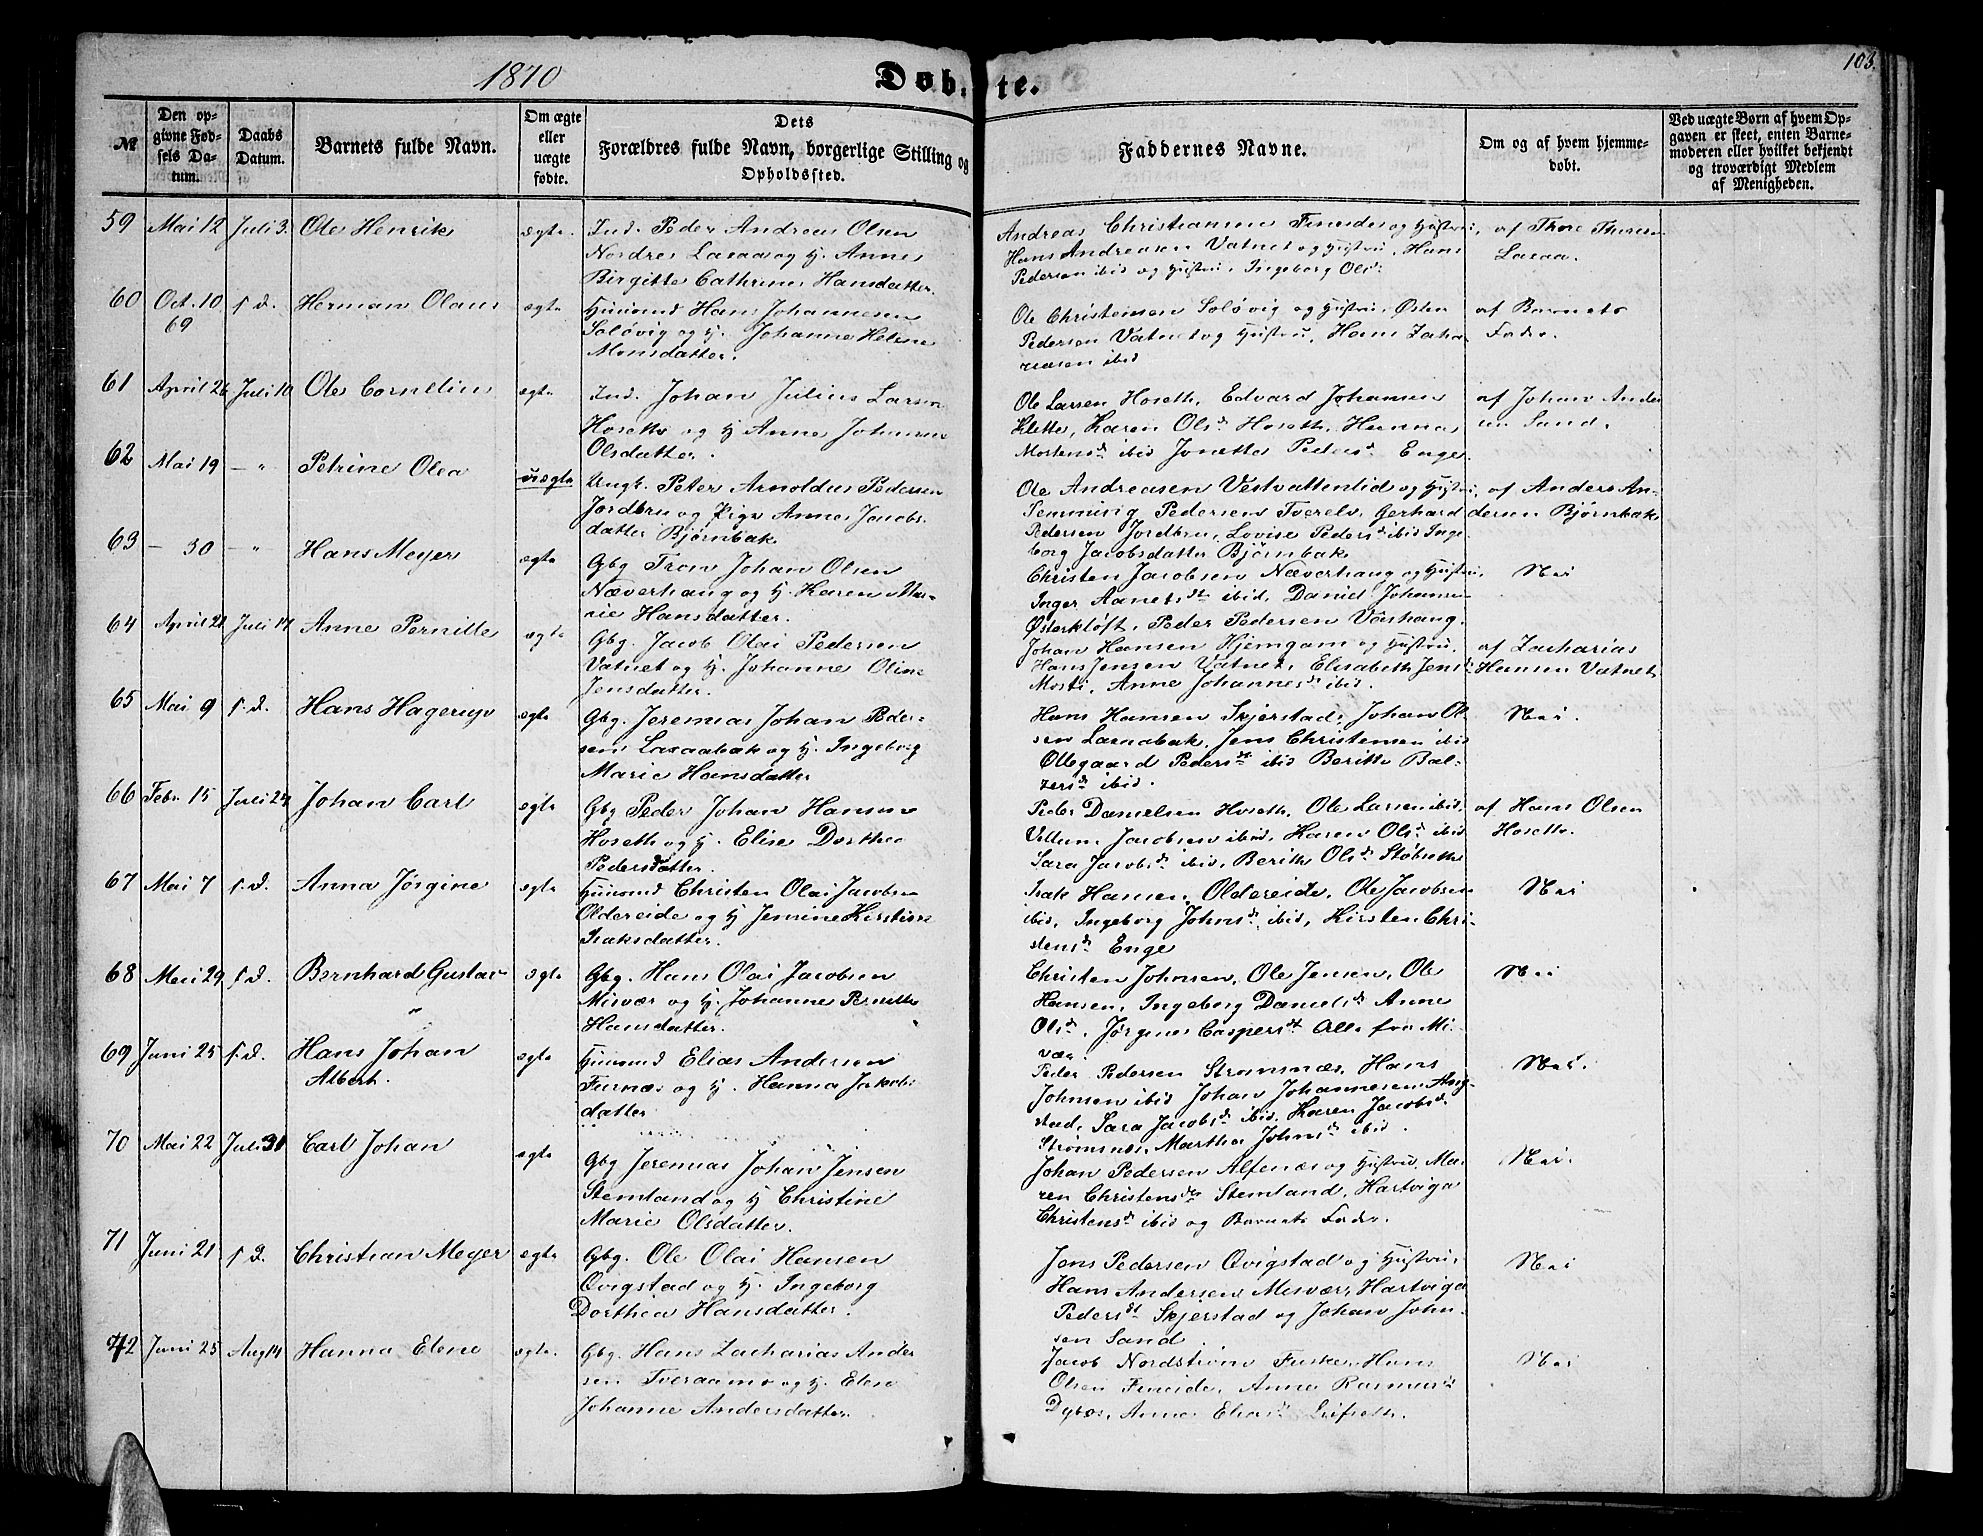 1870
Døbte.
103.
№
Den opgivne Fødsels Datum.
Daabs Datum.
Barnets fulde Navn.
Om ægte eller uægte fødte.
Dets Forældres fulde Navn, borgerlige Stilling og Opholdssted.
Faddernes Navne.
Om og af hvem hjemmedøbt.
Ved uægte Børn af hvem Opgaven er skeet, enten Barnemoderen eller hvilket bekjendt og troværdigt Medlem af Menigheden.
59 Mai 12 Juli 3. Ole Henrik ægte
Ind. Peder Andreas Olsen
Nordre Laxaa og H. Anne
Birgitte Cathrine Hansdatter.
Andreas Christiansen Fineide og Hustru,
Hans Andreasen Vatnet og Hustru, Hans
Pedersen ibid og Hustru, Ingeborg Ols d.
af Thore Thoresen
Laxaa.
60 Oct. 10 69 s. d. Herman Olaus ægte
Huusmd Hans Johannesen
Soløvig og H. Johanne Helene
Monsdatter.
Ole Christensen Soløvig og Hustru, Østen
Pedersen Vatnet og Hustru, Hans Zaha-
riasen ibid
af Barnets
Fader.
61 April 26 Juli 10 Ole Cornelius ægte
Ind. Johan Julius Larsen
Hoseth og H. Anne Johanne
Olsdatter.
Ole Larsen Hoseth, Edvard Johansen
Klette, Karen Ols d. Hoseth, Hanna
Mortens d. ibid Jonetta Peders d. Enge
af Johan Ander
sen Sand.
62 Mai 19 — " Petrine Olea uægte
Ungk. Peter Arnoldus Pedersen
Jordbru og Pige Anne Jacobs-
datter Bjørnbak
Ole Andreasen Vestvattenlid og Hustru,
Pedersen Tverelv, Gerhard
Pedersen Jordbru, Lovise Peders d. ibid Inge-
borg Jacobsdatter Bjørnbak
af Anders An-
dersen Bjørnbak
63 — 30 — " Hans Meyer ægte
Gbg Tron Johan Olsen
Næverhaug og H. Karen Ma-
rie Hansdatter.
Christen Jacobsen Næverhaug og Hustru,
Inger Aanets dt ibid, Daniel Johansen
Østerkløft, Peder Pedersen Vashaug.
Nei
64 April 21 Juli 17 Anne Pernille ægte
Gbg. Jacob Olai Pedersen
Vatnet og H. Johanne Oline
Jensdatter.
Johan Hansen Hjemgam og Hustru,
Hans Jensen Vatnet, Elisabeth Jens d.
Mosti, Anne Johannes d. ibid.
af Zacharias
Hansen Vatnet
65 Mai 9 s. d. Hans Hagerup ægte
Gbg. Jeremias Johan Peder-
sen Laxaabak og H. Ingeborg
Marie Hansdatter
Hans Hansen Skjerstad, Johan Ol-
sen Laxaabak, Jens Christensen ibid
Ollegaard Peders dt ibid Berith Bal-
zers d. ibid.
Nei.
66 Febr. 15 Juli 24 Johan Carl ægte
Gbg Peder Johan Hansen
Hoseth og H. Elise Dorthea
Pedersdatter.
Peder Danielsen Hoseth, Ole Larsen ibid,
Villum Jacobsen ibid, Karen Ols d. ibid
Sara Jacobs d. ibid, Berith Ols d. Støbseth
af Hans Olsen
Hoseth.
67 Mai 7 s. d. Anna Jørgine ægte
Huusmd Christen Olai Jacobsen
Oldereide og H. Jemine Kirstine
Isaksdatter.
Isak Hansen Oldereide, Ole Jacobsen
ibid, Ingeborg Johns d. ibid, Kirsten Chri-
stens d. Enge
Nei
68 Mai 29 s. d. Bernhard Gustav ægte
Gbg. Hans Olai Jacobsen
Misvær og H. Johanne Pernille
Hansdatter.
Christen Johnsen, Ole Jensen, Ole
Hansen, Ingeborg Daniels d. Anne
Ols d., Jørgine Caspers dt Alle fra Mis-
vær
Nei
69 Juni 25 s. d. Hans Johan
Albert. ægte
Huusmd Elias Andersen
Furnæs og H. Hanna Jakobs
datter
Peder Pedersen Strømsnæs, Hans
Johnsen ibid Johan Johannesen Aug-
stad, Sara Jacobs d. ibid, Karen Jacobs d.
Strømsnæs, Martha Johns d. ibid.
Nei.
70 Mai 22 Juli 31 Carl Johan ægte
Gbg Jeremias Johan Jensen
Stemland og H Christine
Marie Olsdatter.
Johan Pedersen Alfenæs og Hustru, Ma-
ren Christens dr Stemland, Hartviga
Christens d. ibid og Barnets Fader.
Nei.
71 Juni 21 s. d. Christian Meyer ægte
Gbg. Ole Olai Hansen
Qvigstad og H. Ingeborg
Dorthea Hansdatter.
Jens Pedersen Qvigstad og Hustru,
Hans Andersen Misvær, Hartviga
Peders dt Skjerstad og Johan John-
sen Sand.
Nei
72 Juni 25 Aug 14 Hanna Elene ægte.
Gbg. Hans Zacharias Ander
sen Tveraamo og H. Elen
Johanne Andersdatter.
Jacob Nordstrøm Fuske, Hans
Olsen Fineide, Anne Rasmus d.
Dybos, Anne Elias d. Leifseth.
Nei